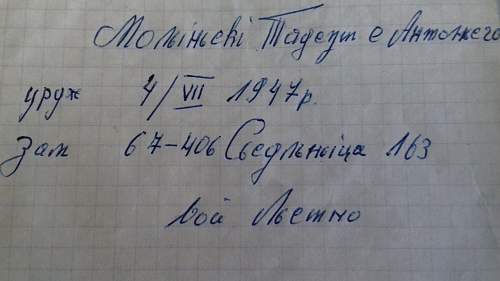 Мольіньскі Тадеуш с Антонєго
урож 4/VII 1947р.
зам 67-406 Сьедльніца 163
вой Льешно